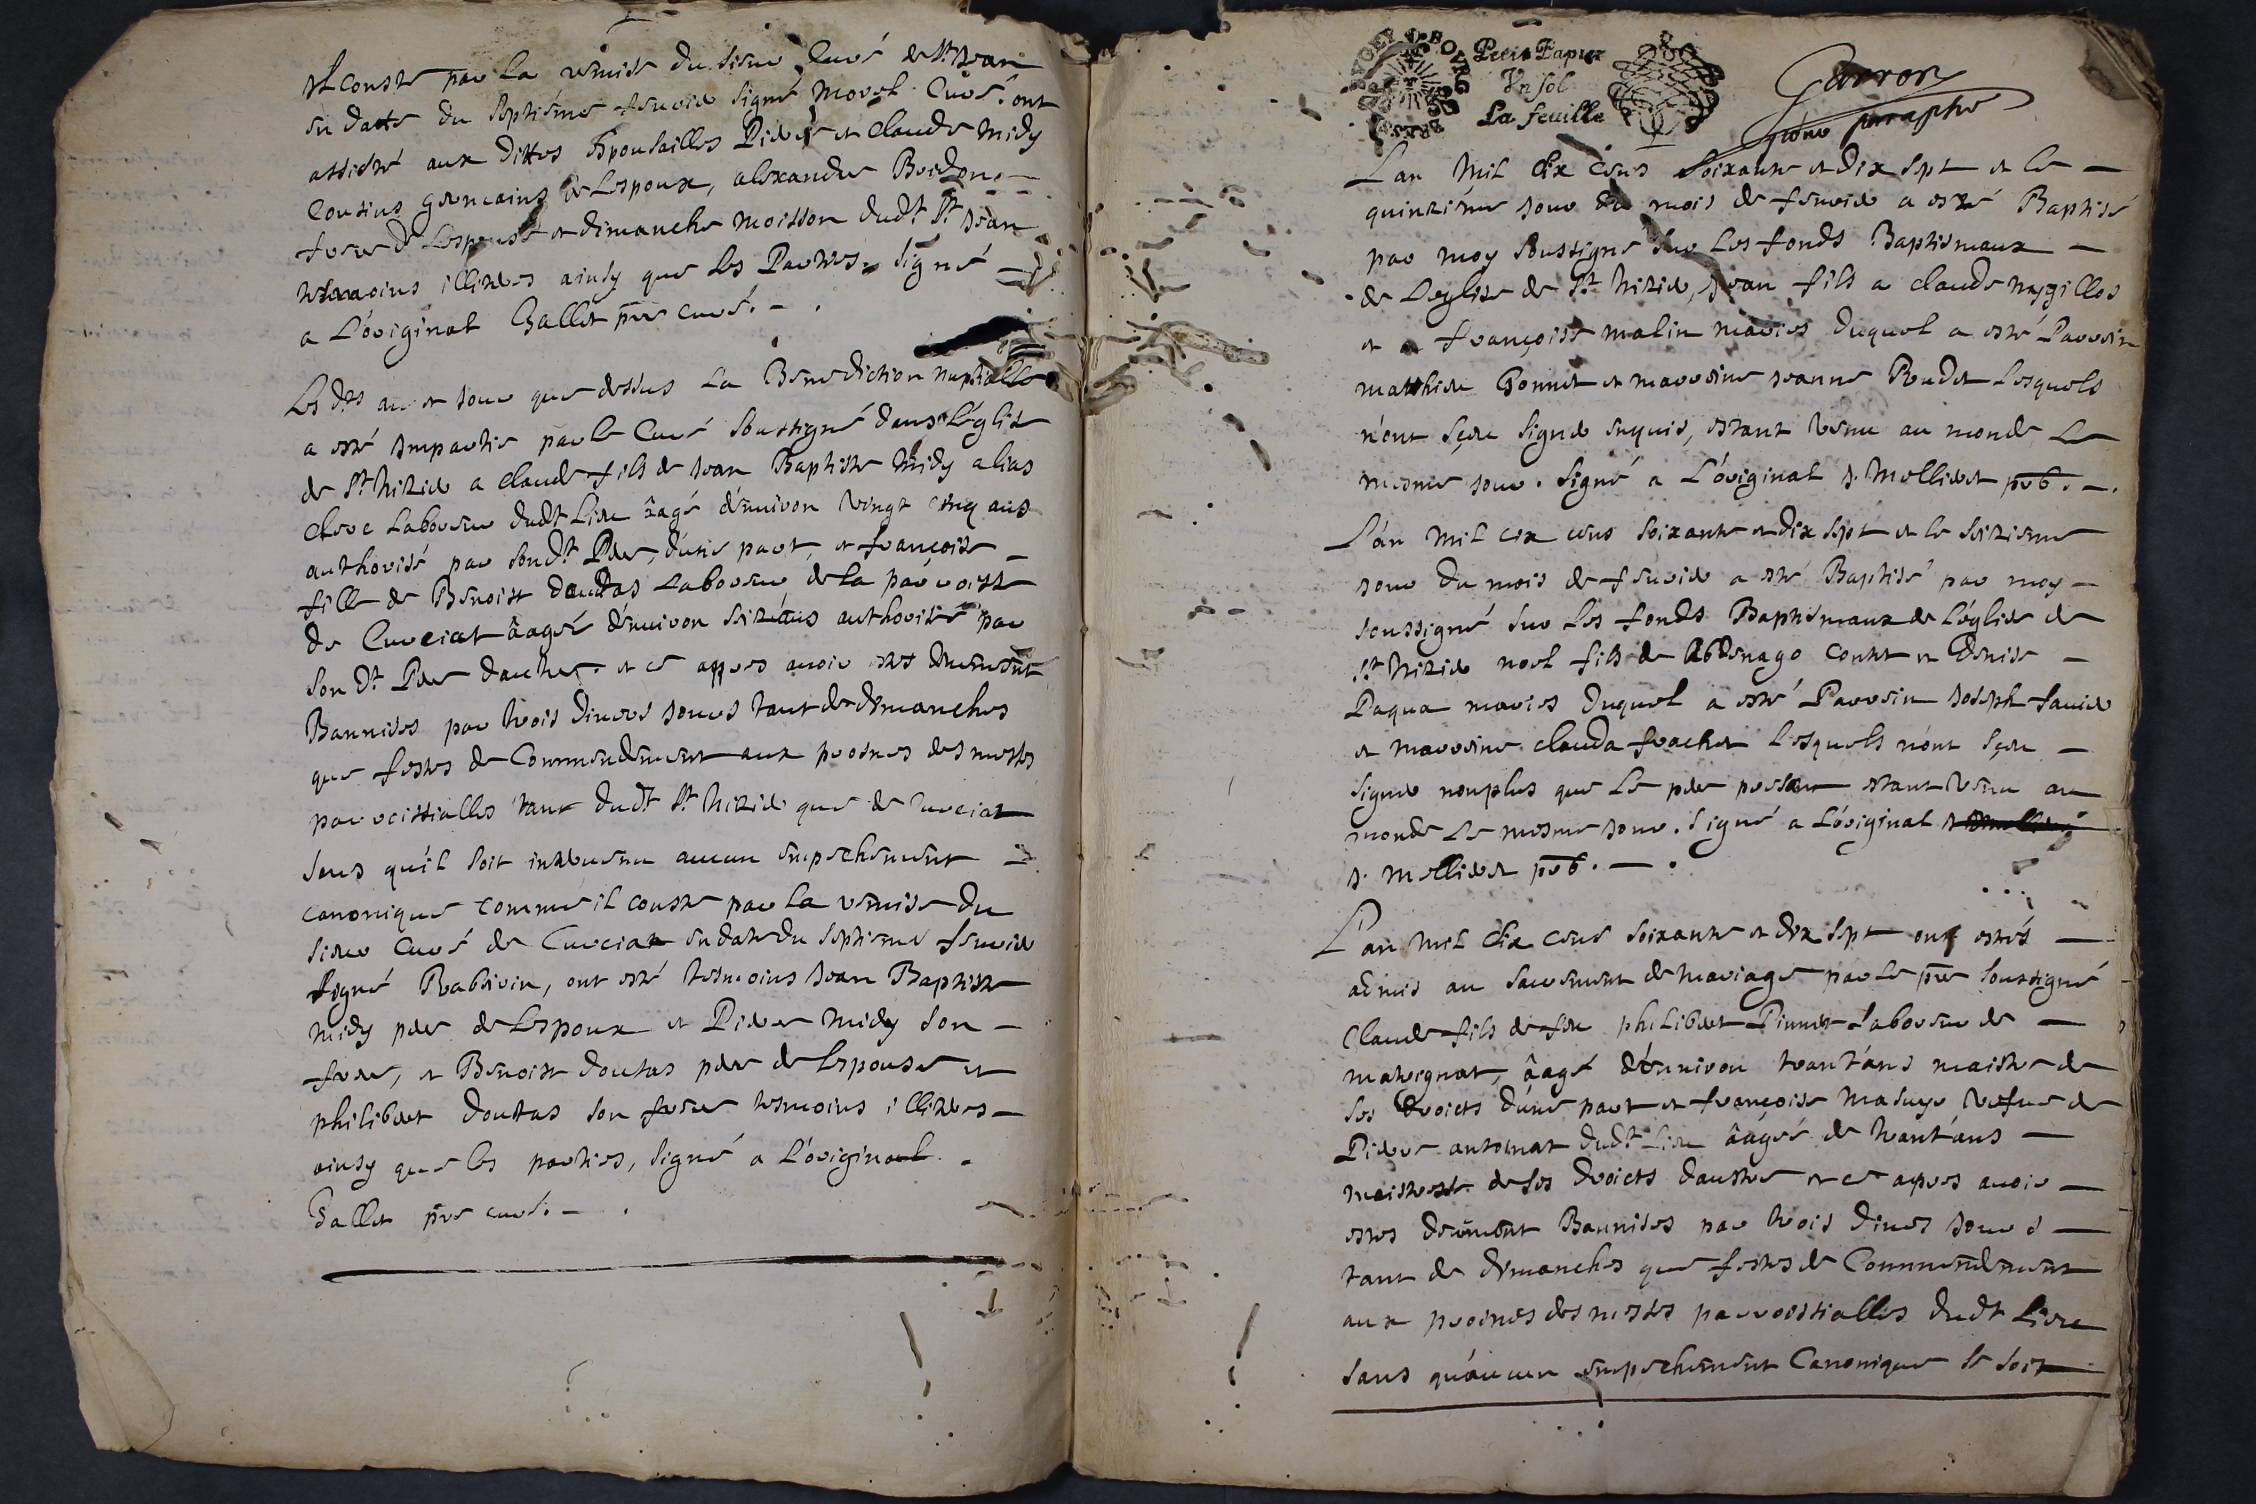 Il conste par la remise du sieur Curé de St Jean
en datte du septiéme feuvrier signé Morel Curé. ont
assisté aux dittes Espousailles Pierre et Claude Midy
Cousins germains de L'espoux, alexandre Bredon
frere de Lespouse et dimanche moisson dudt St Jean
tesmoins illitérés ainsy que les Parties. signé
a L'original Gallet pre curé.
Les dts an et jour que dessus La Benediction nuptialle
a esté impartie par le Curé soussigné dans L'église
de St Nizier a Claude fils de Jean Baptiste Midy alias
clerc Laboureur dudt Lieu âagé d'enuiron vingt cinq ans
authorisé par sondt Pere, d'une part, et françoise
fille de Benoist doutas Laboureur de la parroisse
de Curciat âagée d'enuiron seize ans authorisée par
son dt Pere d'autre. et ce apres auoir estés deuement
Bannises par trois diuers jours tant de dimanches
que festes de Commendement aux prosnes des messes
parroissialles tant dudt St Nizier que de Curciat
sans qu'il soit interuenu aucun empechement
canonique comme il conste par La remise du
sieur Curé de Curciat en date du septiéme feurier
signé Rabeirin, ont esté tesmoins Jean Baptiste
Midy pere de Lespoux et Pierre Midy son
frere, et Benoist doutas pere de Lespouse et
philibert doutas son frere tesmoins illiteres
ainsy que les parties, signé a L'original.
Gallet pre curé.
BOURG
Petit Papier
Vn sol
La feuille
Garron
paraphe
L'an Mil six cens soixante et dix sept et le
quinziéme jour du mois de feurier a esté Baptisé
par moy soussigné sur les fonds Baptismaux
de L'eglise de St Nizier, Jean fils a claude
et a françoise malin mariés duquel a esté Parrein
matthieu Bonnet et marreine Jeanne Rudet Lesquels
n'ont sçeu signer enquis, estant venu au monde Le
mesme jour. signé a L'original J. Mellieret prb.
L'an Mil six cens soixante et dix sept et le seiziéme
jour du mois de feurier a esté Baptisé par moy
soussigné sur les fonds Baptismaux de L'église de
St Nizier noel fils de Abdenago Contet et Denise
Paqua mariés duquel a esté Parrein Joseph fauier
et marreine clauda frachet Lesquels n'ont sçeu
signer nonplus que Le pere present estant venu au
monde Le mesme jour. signé a L'original
J. Mellieret prb.
L'an Mil six cens soixante et dix sept ont estés
admis au sacrement de mariage par Le pre soussigné
Claude fils de feu philibert Pinnet Laboureur de
, âagé d'enuiron trent'ans maistre de
ses droicts d'une part et françoise Masuye vefue de
Pierre dudt Lieu âagée de trent'ans
maistresse de ses droicts d'autre et ce apres auoir
estés deuement Bannises par trois diuers jours
tant de dimanches que festes de Commendement
aux prosnes des messes parroissialles dudt Lieu
sans qu'aucun empechement Canonique se soit